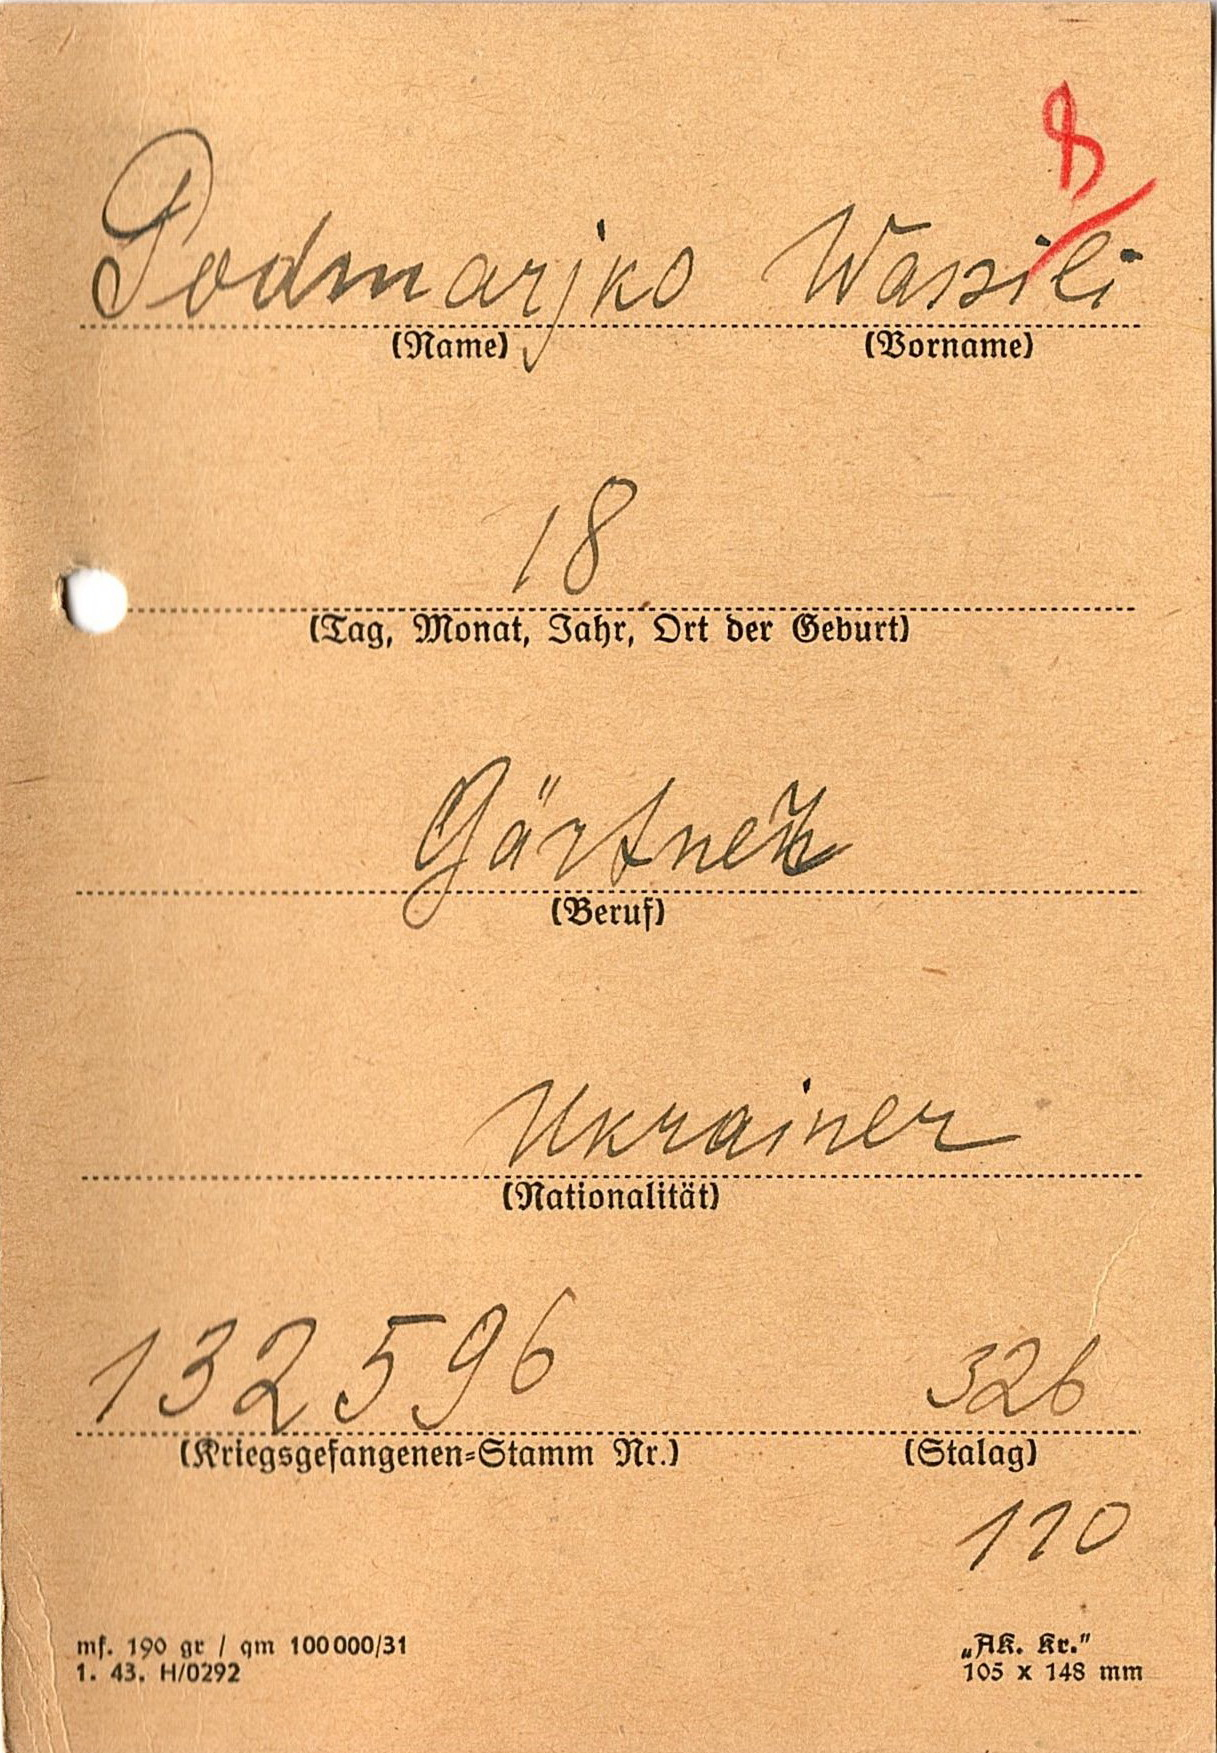 Podmarjko Wassili
(Name) (Vorname)
18
(Tag, Monat, Jahr, Ort der Geburt)
Gärtner
(Beruf)
Ukrainer
(Nationalität)
132596 326
(Kriegsgefangenen=Stamm Nr.) (Stalag)
110
mf. 190 gr / qm 100000/31 „Ak. Kr.”
1. 43. H/0292 105 x 148 mm